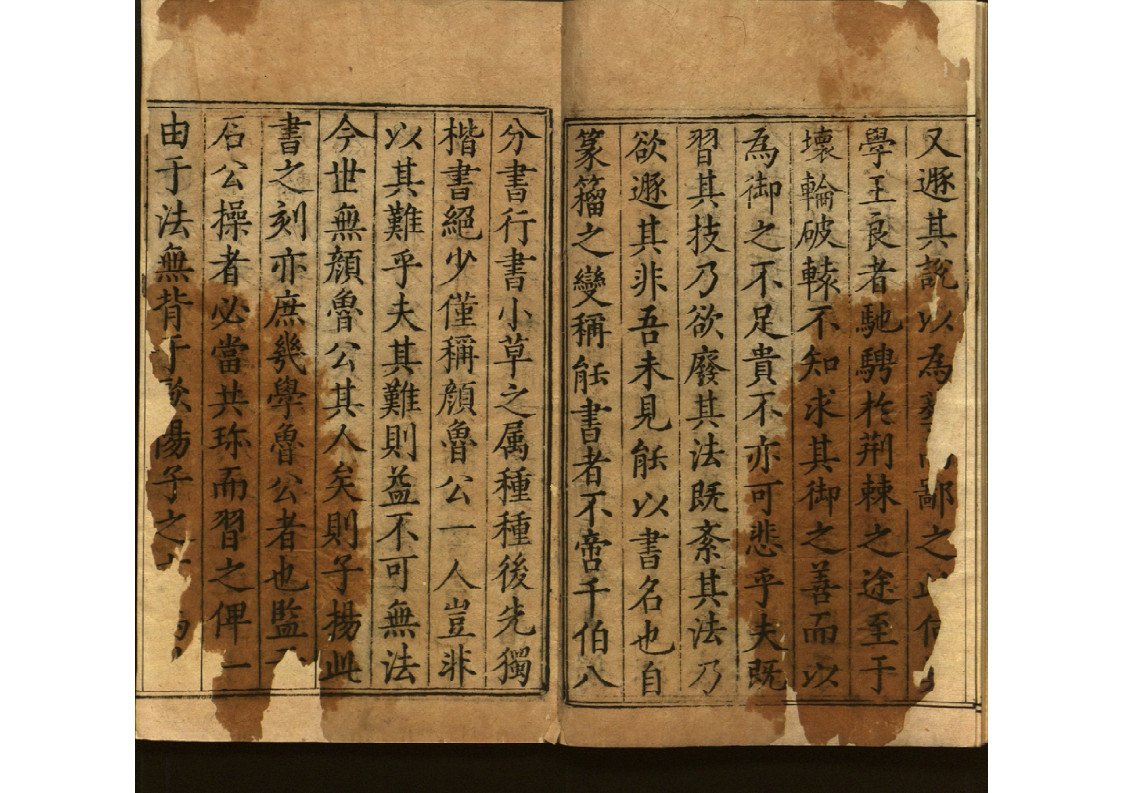 又遯其說以為鄙之
學王良者馳騁柞荆棘之途至于
壞輪破轅不知求其御之善而以
為御之不足貴不亦可悲乎夫既
習其技乃欲廢其法既紊其法乃
欲遯其非吾未見能以書名也自
篆籀之變稱能書者不啻千伯八
分書行書小草之属種種後先獨
楷書絕少僅稱顔魯公一人豈非
以其難乎夫其難則益不可無法
今世無顔魯公其人矣則子揚此
書之刻亦庶幾學魯公者也監
石公操者必當共珎而習之俾一
由于法無背于陽子之